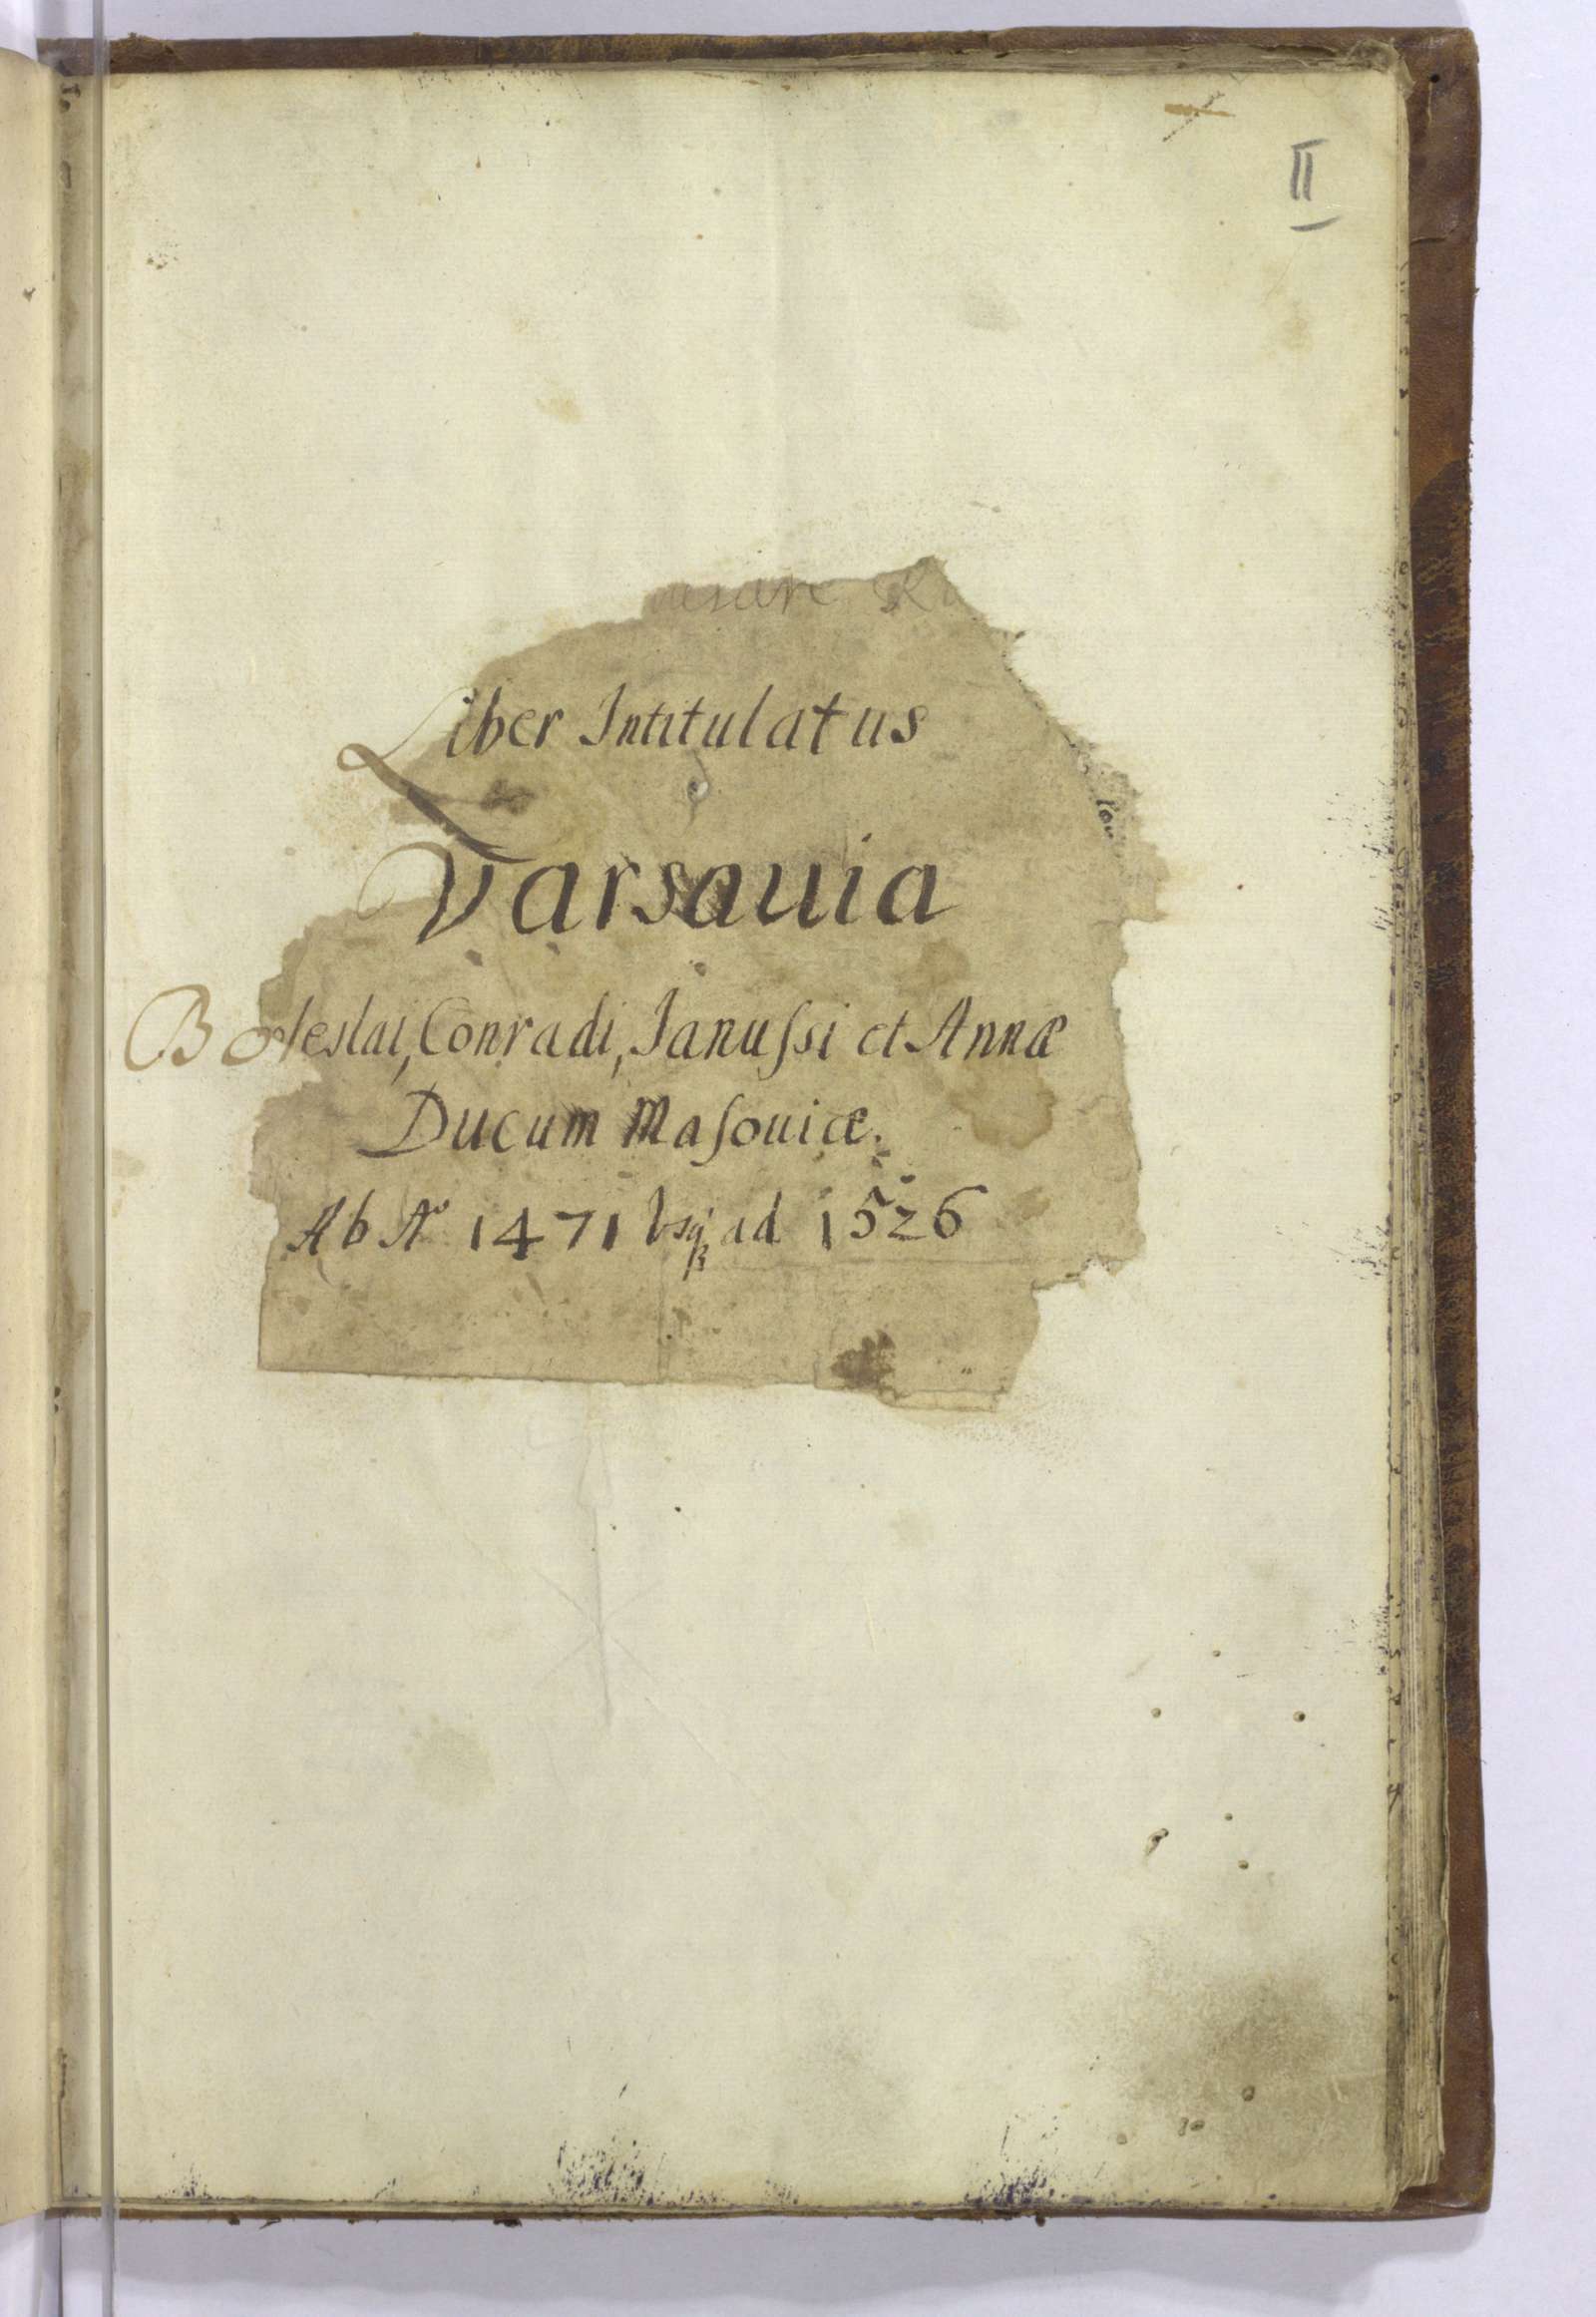 II
Liber Intitulatus
Varsauia
Boleslai, Conradi, Januſsi et Annæ
Ducum Maſouiæ.
Ab Aº 1471 vsqꝫ ad 1526